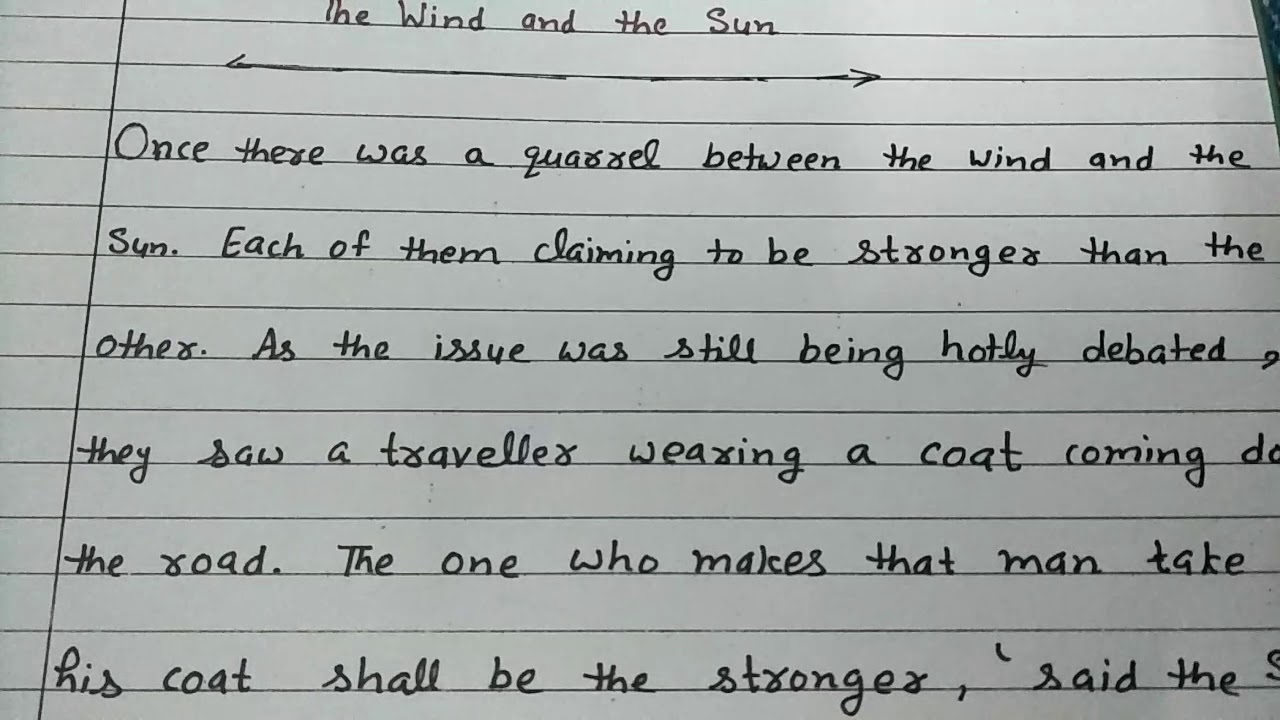 The Wind and the Sun
Once there was a quarrel between the wind and the
Sun. Each of them claiming to be stronger than the
other. As the issue was still being hotly debated,
they saw a traveller wearing a coat coming do
the road. The one who makes that man take
his coat shall be the stronger, ‘ said the S